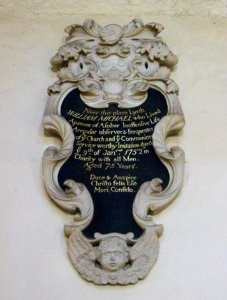 Near this place lyeth
WILLIAM MICHAEL who Lived
a Person of a Sober Inoffensive Life
A regular observer & frequenter
of ye Church and ye Communion
Service worthy Imitation dyed
ye 9th of Janry 1752 in
Charity with all Men.
Aged 75 Years.
Duce & Auspice
Christo felix Ille
Mori, Confido.